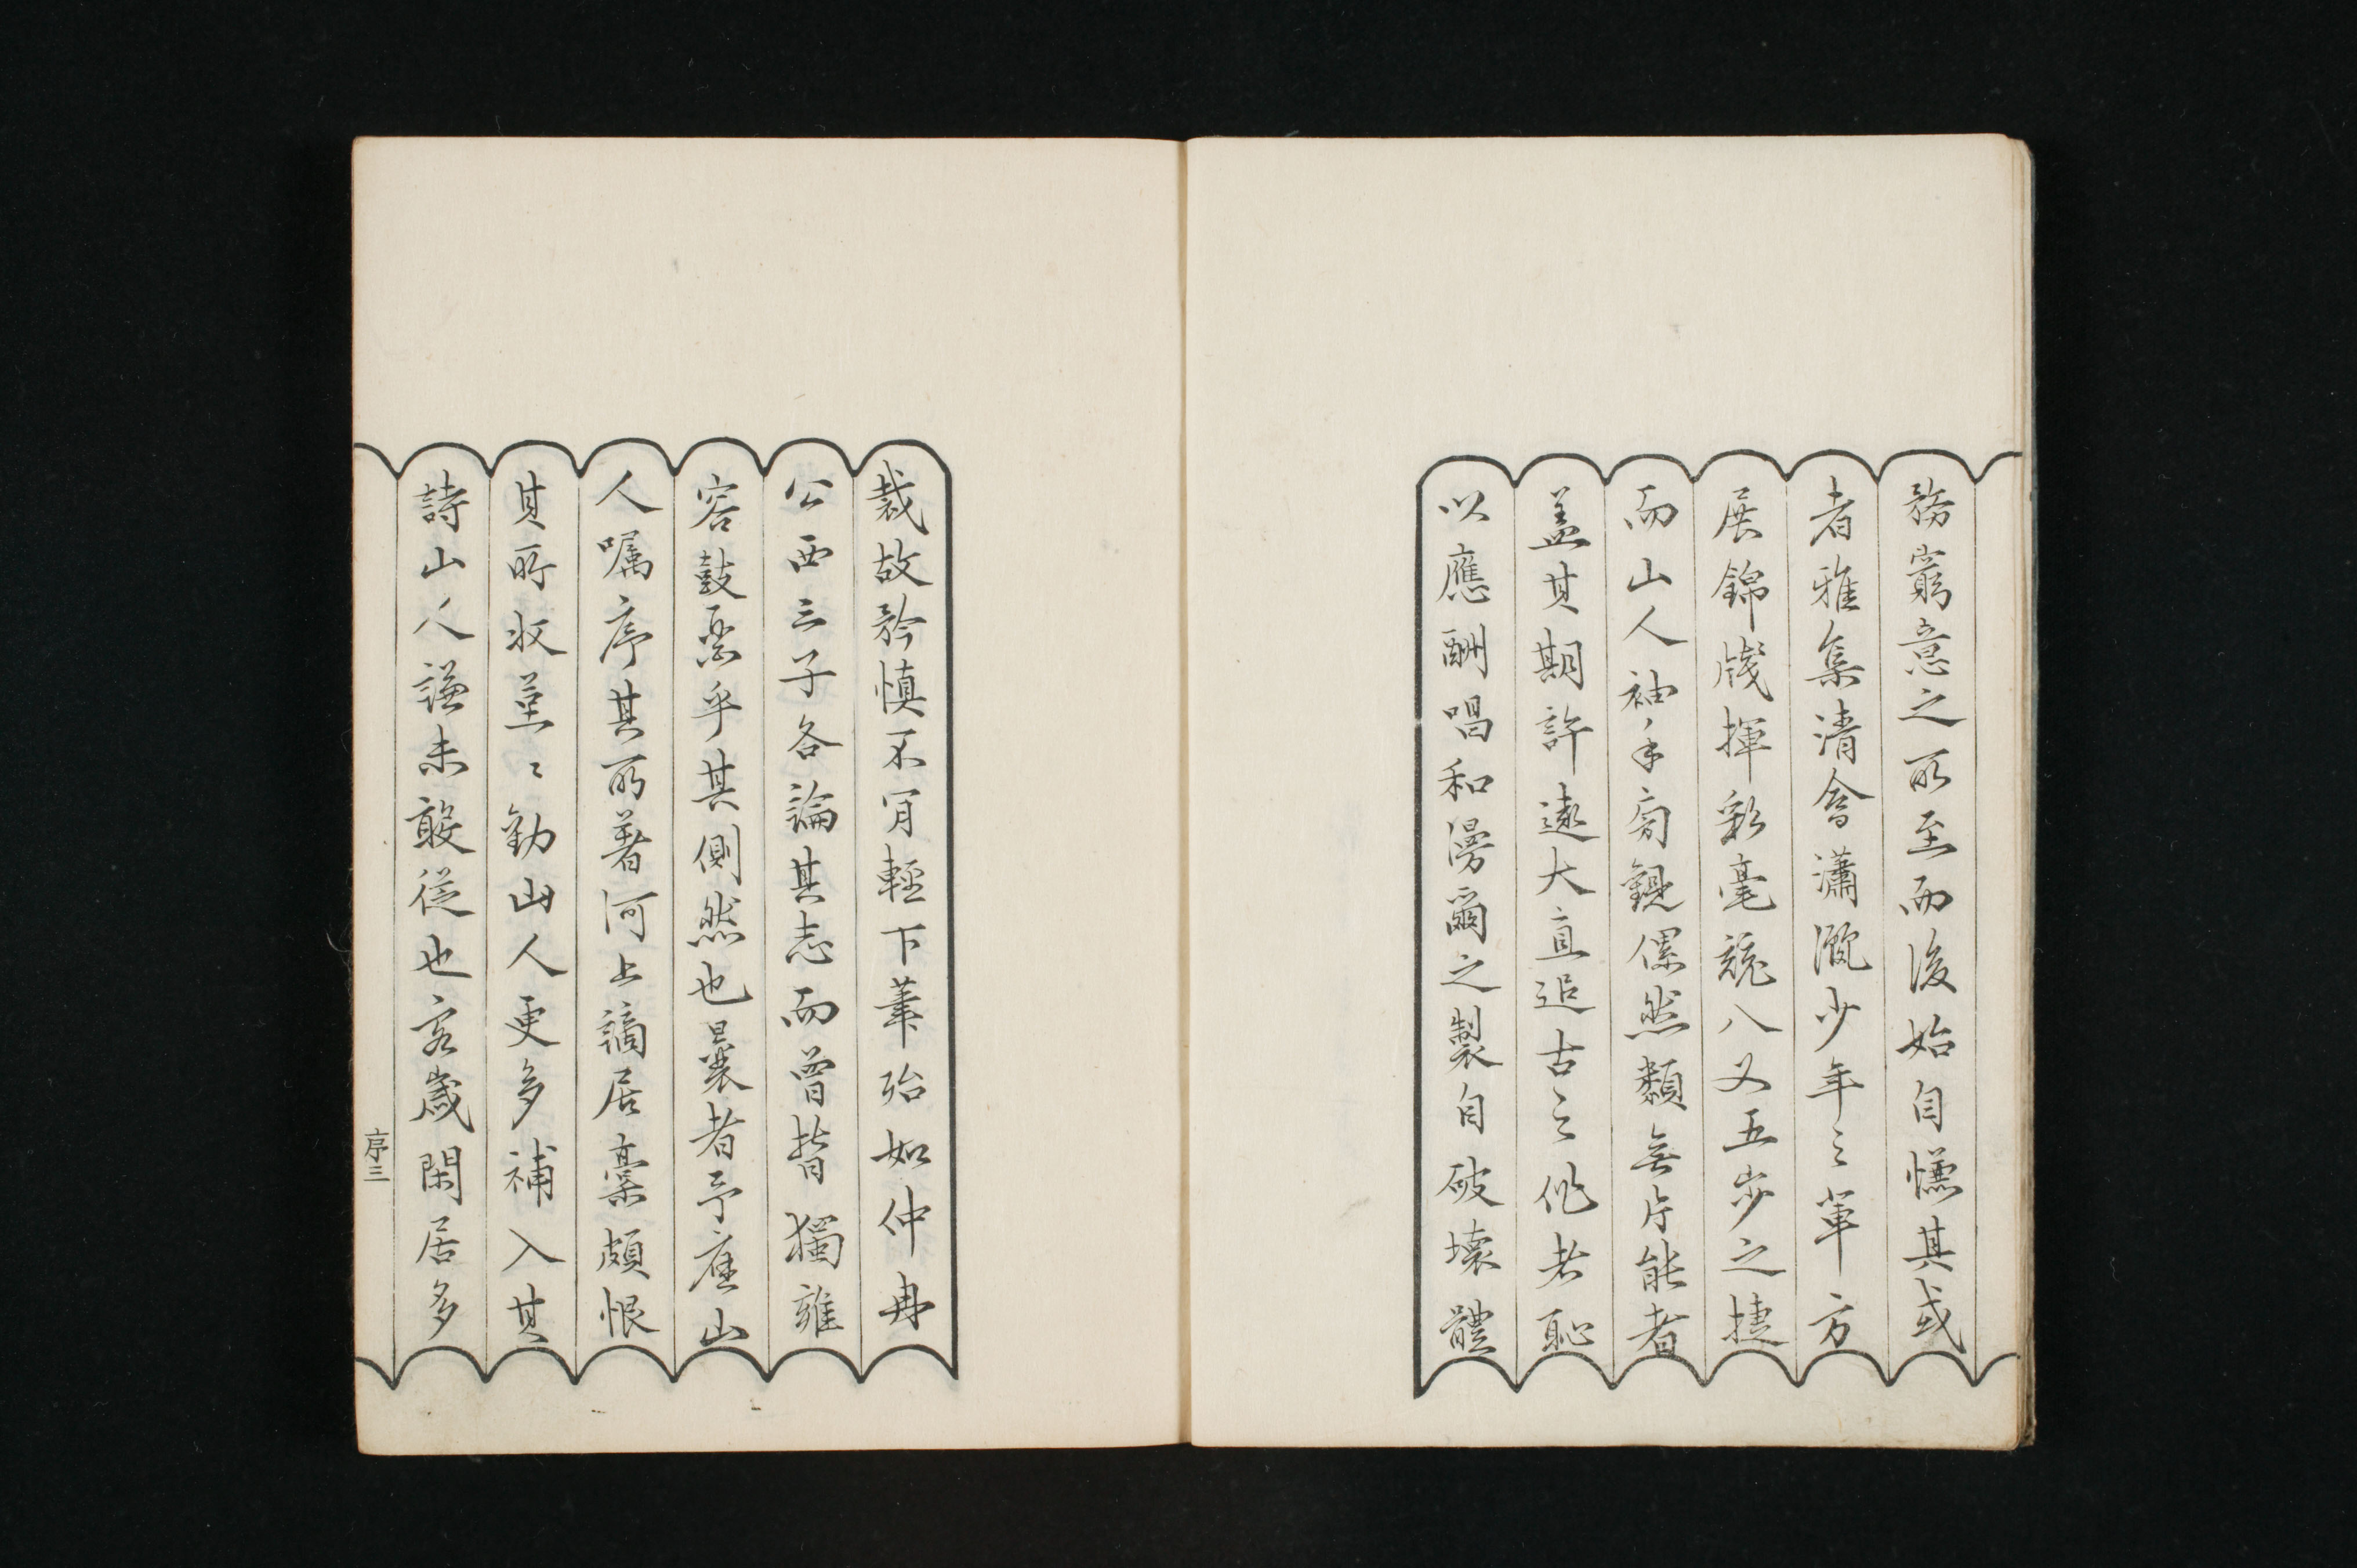 務窮意之所至而後始自慊其或
者雅集清會瀟灑少年之輩方
展錦牋揮彩毫競八叉五步之捷
而山人袖手旁觀傫然類無片能者
蓋其期許遠大直追古之作者恥
以應酬唱和漫爾之製自破壞體
裁故矜慎不肯輕下筆殆如仲冉
公西三子各論其志而曾晳獨雍
容鼓瑟乎其側然也曩者予應山
人囑序其所著河上謫居稾頗恨
其所收堇〻勸山人更多補入其
詩山人謙未敢從也客歲閑居多
序三